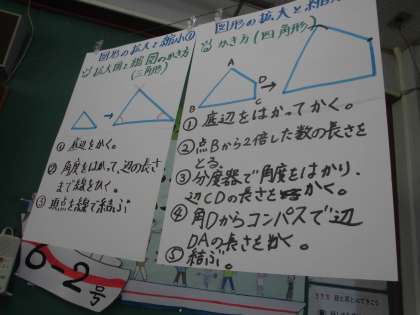 図形の拡大と縮小①
拡大図と縮図のかき方
(三角形)
① 底辺をかく。
② 角度をはかって、辺の長さ
まで線をひく。
③ 頂点を線で結ぶ
図形の拡大と縮
かき方(四角形)
A
B
C
D
① 底辺をはかってかく。
② 点Bから2倍した数の長さを
とる。
③ 分度器で角度をはかり、
辺CDの長さをかく。
④ 角Dからコンパスで辺
DAの長さをかく。
⑤ 結ぶ。
6-2
号